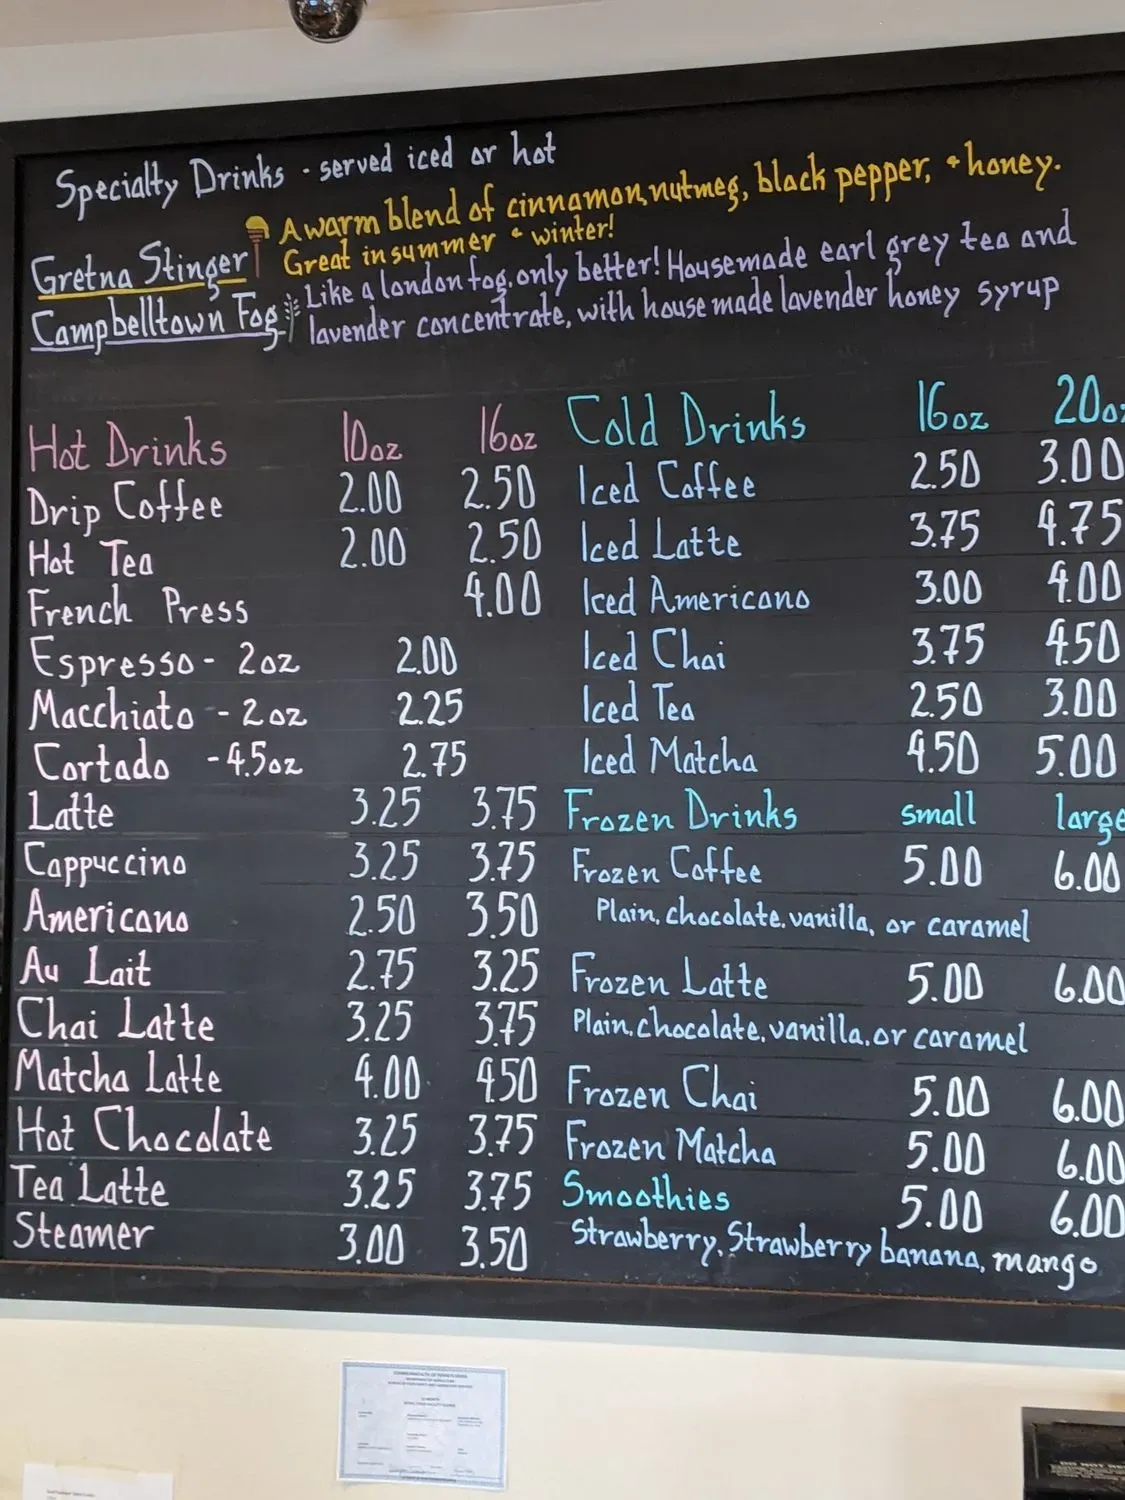 Specialty Drinks - served iced or hot
Gretna Stinger A warm blend of cinnamon, nutmeg, black pepper, + honey.
Great in summer + winter!
Campbelltown Fog Like a london fog, only better! Housemade earl grey tea and
lavender concentrate, with house made lavender honey syrup
Hot Drinks 10oz 16oz
Drip Coffee 2.00 2.50
Hot Tea 2.00 2.50
French Press 4.00
Espresso - 2oz 2.00
Macchiato - 2oz 2.25
Cortado - 4.5oz 2.75
Latte 3.25 3.75
Cappuccino 3.25 3.75
Americano 2.50 3.50
Au Lait 2.75 3.25
Chai Latte 3.25 3.75
Matcha Latte 4.00 4.50
Hot Chocolate 3.25 3.75
Tea Latte 3.25 3.75
Steamer 3.00 3.50
Cold Drinks 16oz 20oz
Iced Coffee 2.50 3.00
Iced Latte 3.75 4.75
Iced Americano 3.00 4.00
Iced Chai 3.75 4.50
Iced Tea 2.50 3.00
Iced Matcha 4.50 5.00
Frozen Drinks small large
Frozen Coffee 5.00 6.00
Plain, chocolate, vanilla, or caramel
Frozen Latte 5.00 6.00
Plain, chocolate, vanilla, or caramel
Frozen Chai 5.00 6.00
Frozen Matcha 5.00 6.00
Smoothies 5.00 6.00
Strawberry, Strawberry banana, mango
COMMONWEALTH OF PENNSYLVANIA